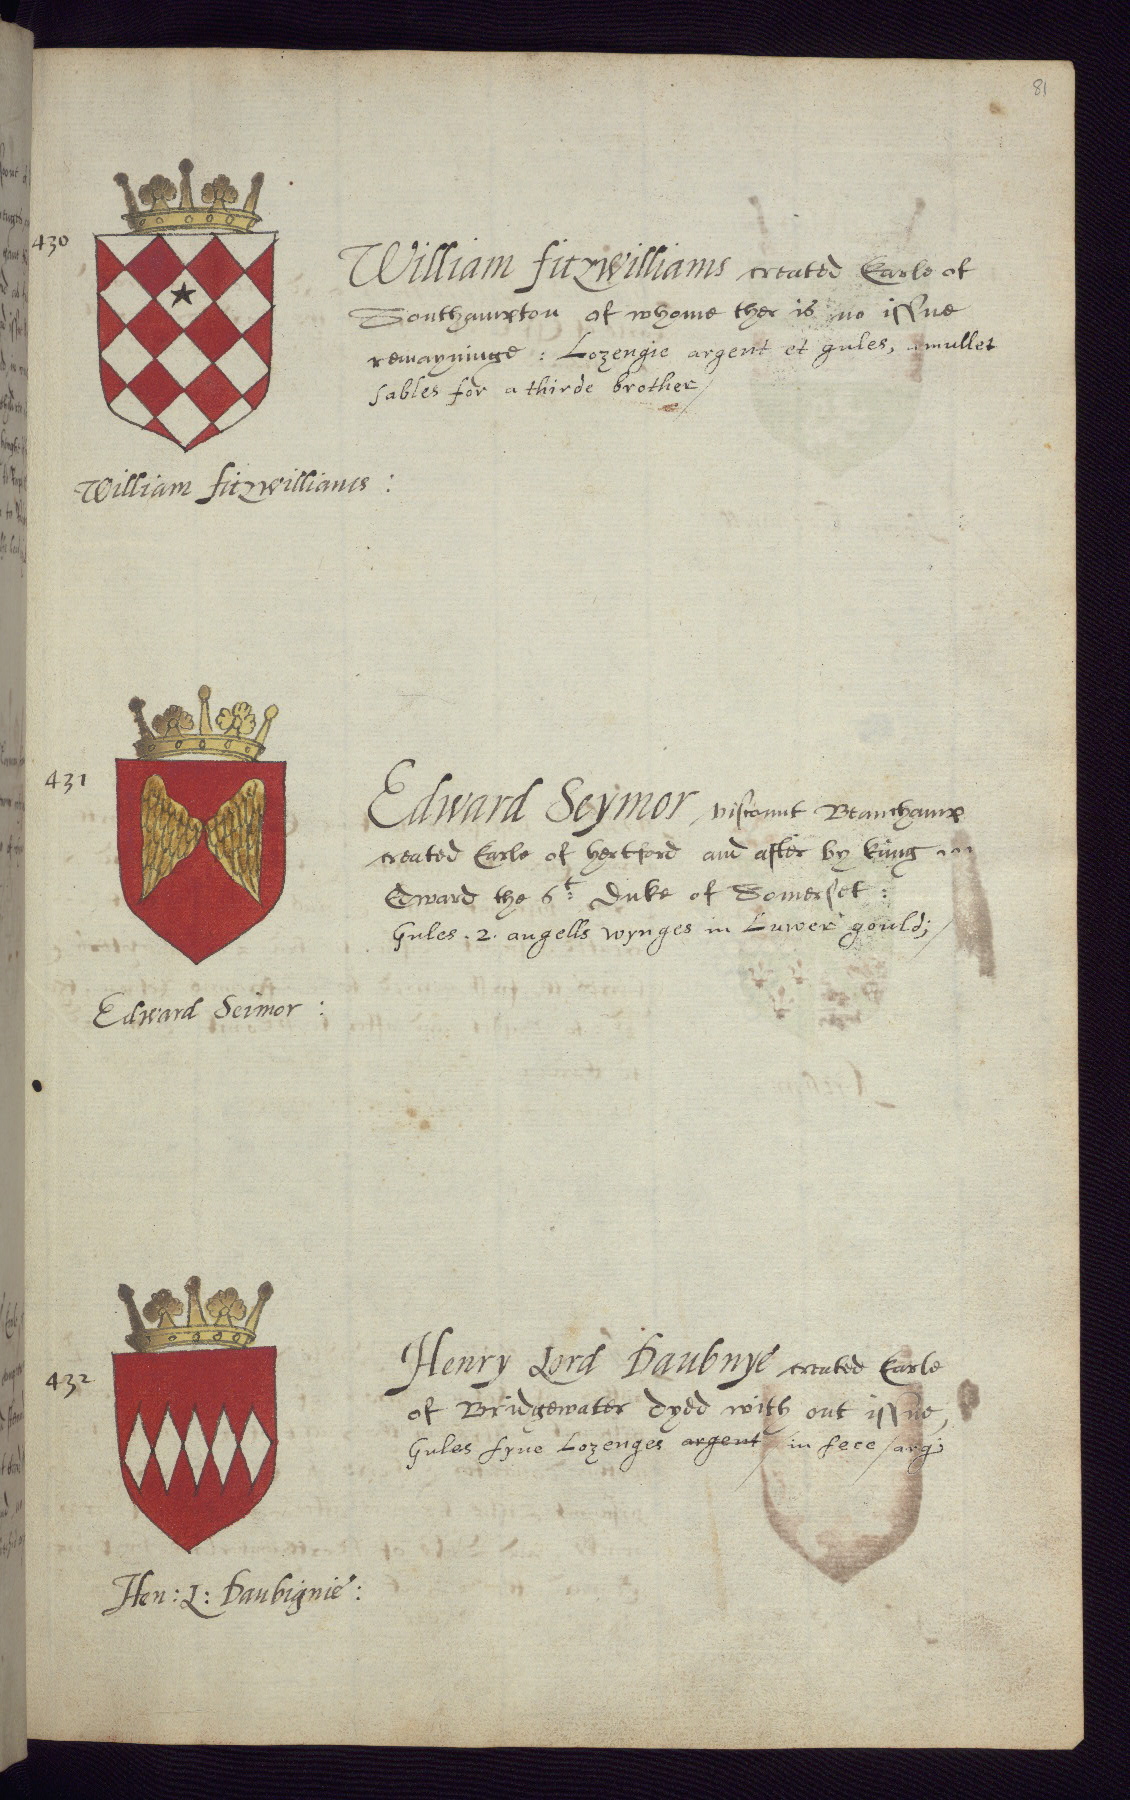 81
430
William fitzwilliams created Earle of
Southampton of whome ther is no issue
remayninge : Lozengie argent et gules, a mullet
sables for a thirde brother
William fitzwilliams :
431
Edward Seymor viscount Beauchamp
created Earle of hertford and after by king
Edward the 6t: Duke of Somerset :
Gules . 2 . angells wynges in Luwer gould;
Edward Seimor :
432
Henry Lord Daubnye created Earle
of Bridgewater dyed with out issue,
Gules fyue Lozenges argent in fece arg:
Hen : L : Daubignie :